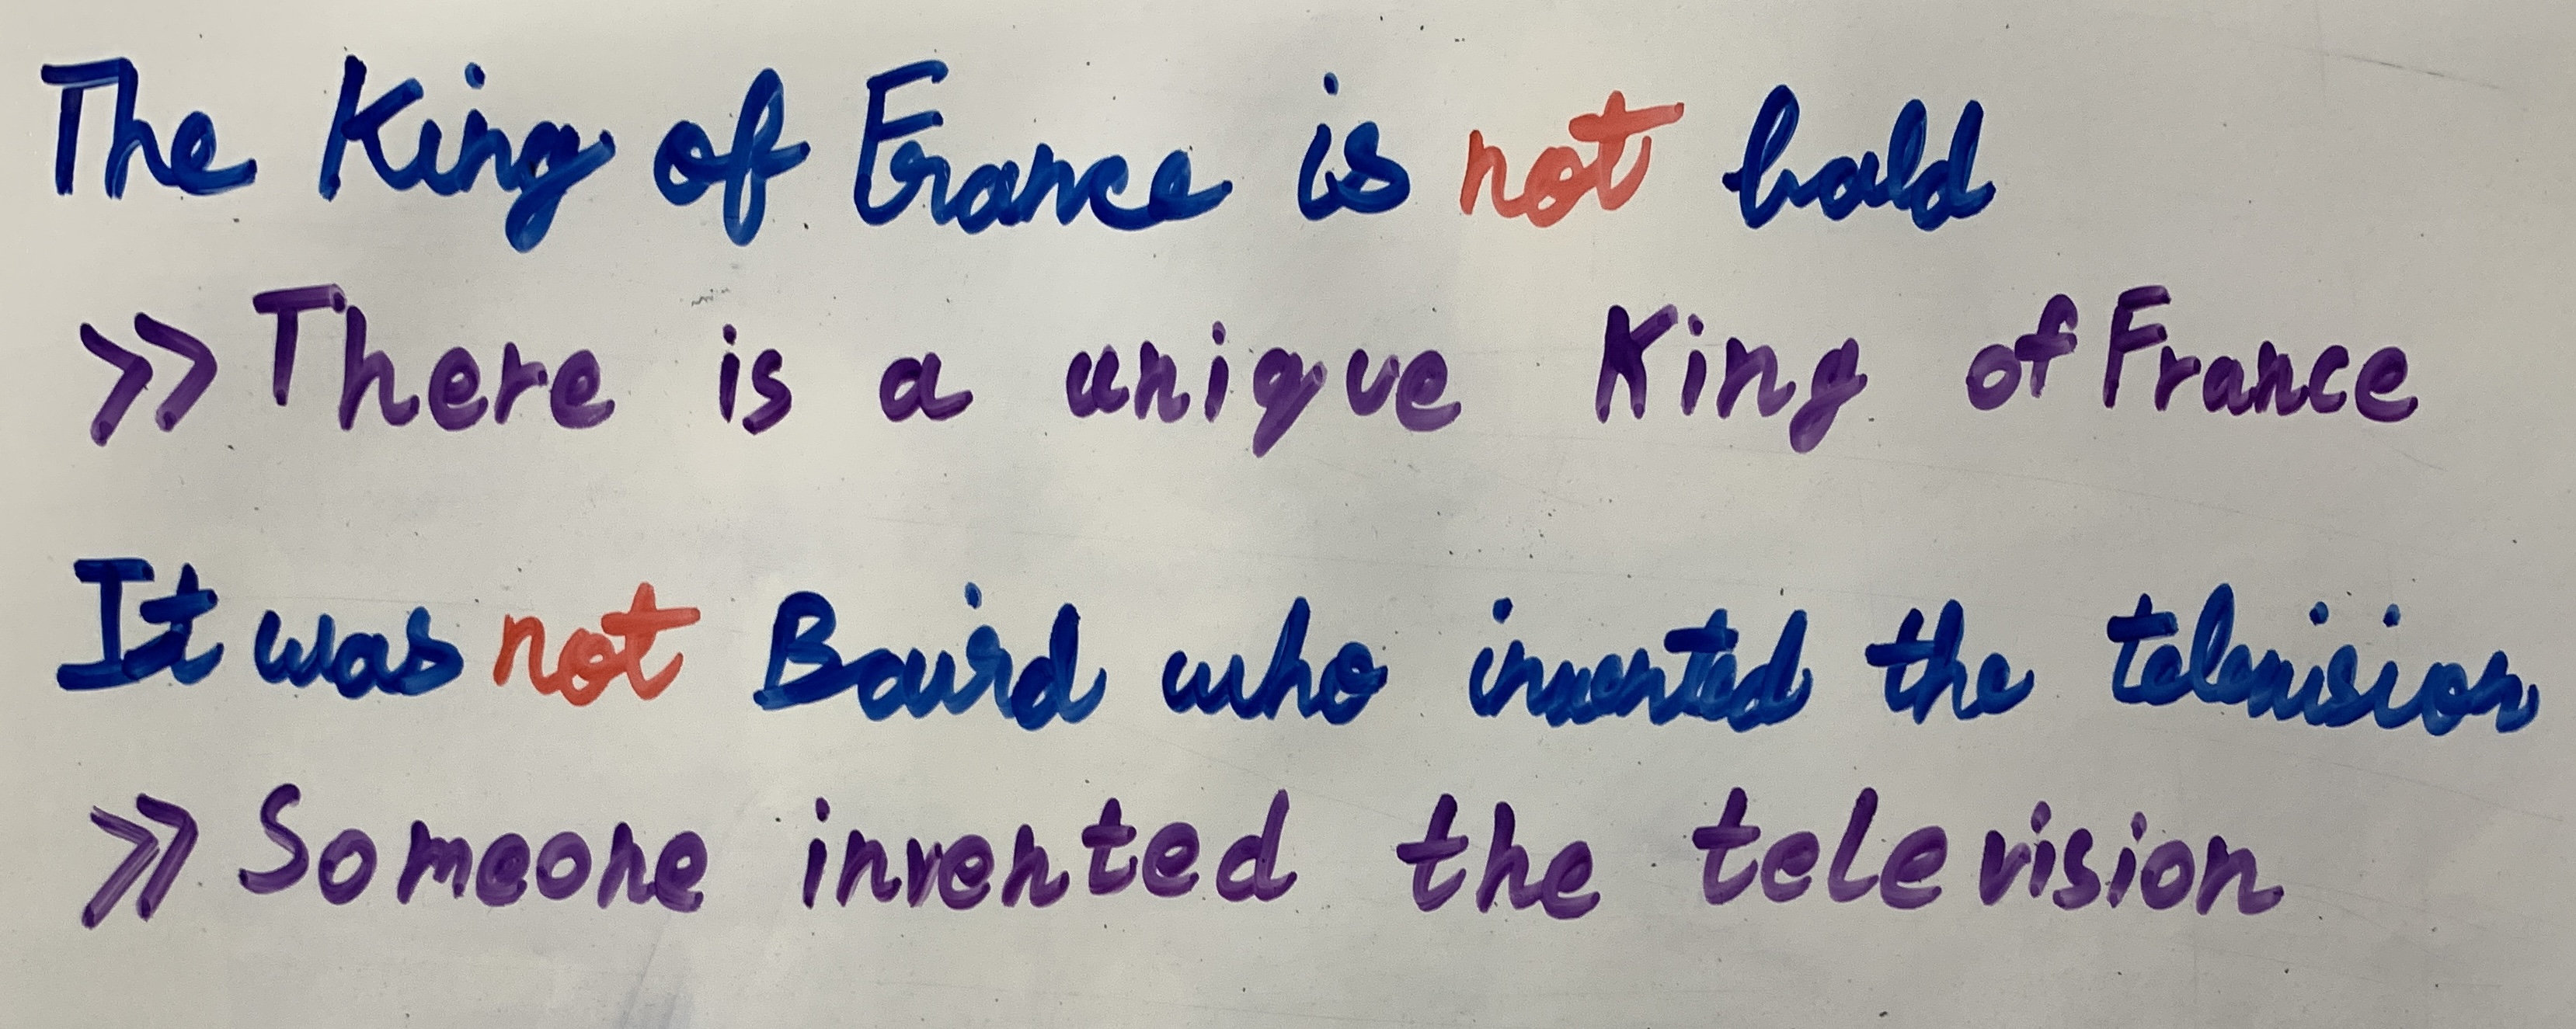 The King of France is not bald
>> There is a unique King of France
It was not Baird who invented the television
>> Someone invented the television